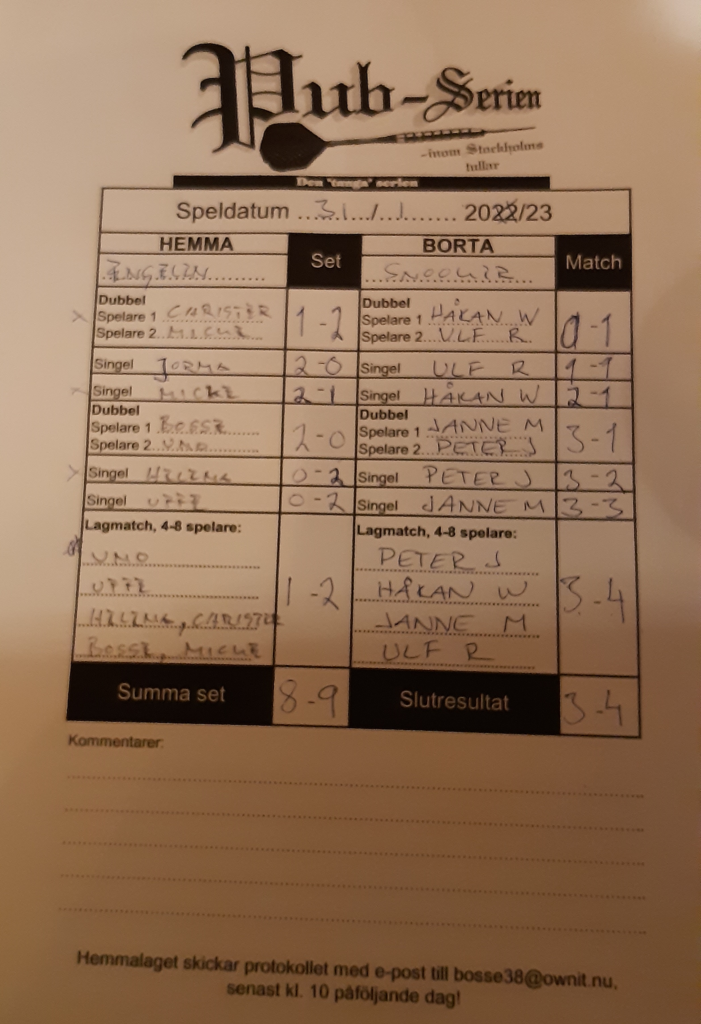 Pub-Serien
-inom Stockholms
tullar
Den "tunga" serien
Speldatum ...31.../...1....... 2022/23
HEMMA Set BORTA Match
ÄNGELEN SNOOKER
Dubbel Dubbel
Spelare 1 CHRISTER 1-2 Spelare 1 HÅKAN W 0-1
Spelare 2 MICKE Spelare 2 ULF R
Singel JORMA 2-0 Singel ULF R 1-1
Singel MICKE 2-1 Singel HÅKAN W 2-1
Dubbel Dubbel
Spelare 1 BOSSE 2-0 Spelare 1 JANNE M 3-1
Spelare 2 UNO Spelare 2 PETER J
Singel HELENA 0-2 Singel PETER J 3-2
Singel UFFE 0-2 Singel JANNE M 3-3
Lagmatch, 4-8 spelare: Lagmatch, 4-8 spelare:
UNO PETER J
UFFE 1-2 HÅKAN W 3-4
HELENA, CHRISTER JANNE M
BOSSE, MICKE ULF R
Summa set 8-9 Slutresultat 3-4
Kommentarer:
Hemmalaget skickar protokollet med e-post till bosse38@ownit.nu,
senast kl. 10 påföljande dag!